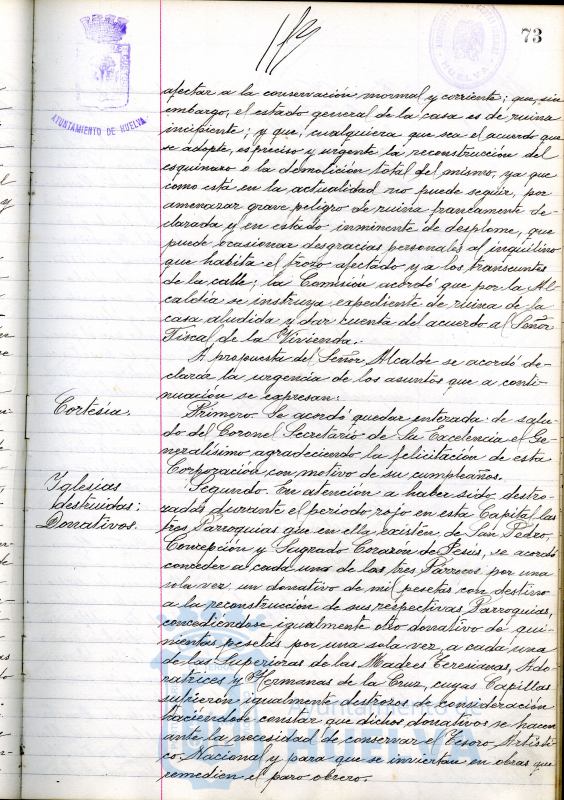 73
AYUNTAMIENTO DE HUELVA
HUELVA
afectar a la conservación normal y corriente; que, sin
embargo, el estado general de la casa es de ruina
incipiente; y que, cualquiera que sea el acuerdo que
se adopte, es preciso y urgente la reconstrucción del
esquinazo o la demolición total del mismo, ya que
como está en la actualidad no puede seguir, por
amenazar grave peligro de ruina francamente de-
clarada y en estado inminente de desplome, que
puede ocasionar desgracias personales al inquilino
que habita el trozo afectado y a los transeuntes
de la calle; la Comisión acordó que por la Al-
caldía se instruya expediente de ruina de la
casa aludida y dar cuenta del acuerdo al Señor
Fiscal de la Vivienda.
A propuesta del Señor Alcalde se acordó de-
clarar la urgencia de los asuntos que a conti-
nuación se expresan:
Cortesía.
Primero. Se acordó quedar enterada de salu-
do del Coronel Secretario de Su Excelencia el Ge-
neralísimo agradeciendo la felicitación de esta
Corporación con motivo de su cumpleaños.
Iglesias
destruidas:
Donativos.
Segundo. En atención a haber sido destro-
zadas durante el periodo rojo en esta Capital las
tres Parroquias que en ella existen, de San Pedro,
Concepción y Sagrado Corazón de Jesús, se acordó
conceder a cada uno de los tres Párrocos por una
sola vez un donativo de mil pesetas con destino
a la reconstrucción de sus respectivas Parroquias,
concediéndose igualmente otro donativo de qui-
nientas pesetas por una sola vez, a cada una
de las Superioras de las Madres Teresianas, Ado-
ratrices y Hermanas de la Cruz, cuyas Capillas
sufrieron igualmente destrozos de consideración
haciéndose constar que dichos donativos se hacen
ante la necesidad de conservar el Tesoro Artísti-
co Nacional y para que se inviertan en obras que
remedien el paro obrero.
Ayuntamiento de
HUELVA